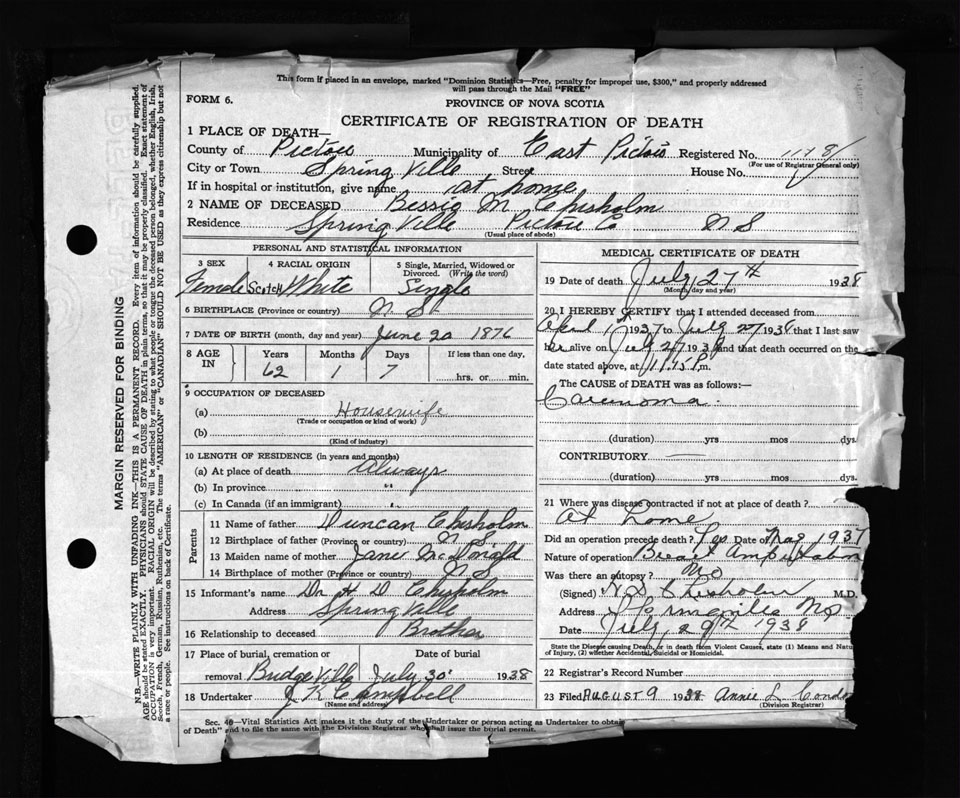 This form if placed in an envelope, marked "Dominion Statistics—Free, penalty for improper use, $300," and properly addressed
will pass through the Mail "FREE"
FORM 6.
PROVINCE OF NOVA SCOTIA
CERTIFICATE OF REGISTRATION OF DEATH
1 PLACE OF DEATH—
County of Pictou Municipality of East Pictou Registered No.
(For use of Registrar General only)
City or Town Spring Ville Street House No.
If in hospital or institution, give name at home
2 NAME OF DECEASED Bessie M Chisholm
Residence Spring Ville Pictou Co N S
(Usual place of abode)
PERSONAL AND STATISTICAL INFORMATION
3 SEX 4 RACIAL ORIGIN 5 Single, Married, Widowed or
Divorced. (Write the word)
Female Scotch White Single
6 BIRTHPLACE (Province or country) N. S.
7 DATE OF BIRTH (month, day and year) June 20 1876
8 AGE IN Years Months Days If less than one day,
62 1 7 hrs. or min.
9 OCCUPATION OF DECEASED
(a) Housewife
(Trade or occupation or kind of work)
(b)
(Kind of industry)
10 LENGTH OF RESIDENCE (in years and months)
(a) At place of death Always
(b) In province "
(c) In Canada (if an immigrant)
Parents
11 Name of father Duncan Chisholm
12 Birthplace of father (Province or country) N S
13 Maiden name of mother Jane McDonald
14 Birthplace of mother (Province or country) N S
15 Informant's name Dr H D Chisholm
Address Spring Ville
16 Relationship to deceased Brother
17 Place of burial, cremation or Date of burial
removal Bridge Ville July 30 1938
18 Undertaker J K Campbell
(Name and address)
MEDICAL CERTIFICATE OF DEATH
19 Date of death July 27th 1938
(Month, day and year)
20 I HEREBY CERTIFY that I attended deceased from
April 1937 to July 27 1938 that I last saw
her alive on July 27 1938 and that death occurred on the
date stated above, at 11.45 P m.
The CAUSE OF DEATH was as follows:—
Carcinoma
(duration) yrs mos dys.
CONTRIBUTORY
(duration) yrs mos dys
21 Where was disease contracted if not at place of death?
At home
Did an operation precede death? Yes Date of May 1937
Nature of operation Breast Amputation
Was there an autopsy? No
(Signed) H D Chisholm M.D.
Address Springville NS
Date July 29th 1938
State the Disease causing Death, or in death from Violent Causes, state (1) Means and Natu
of Injury, (2) whether Accidental, Suicidal or Homicidal.
22 Registrar's Record Number
23 Filed AUGUST 9 1938 Annie L
(Division Registrar)
Sec. 40—Vital Statistics Act makes it the duty of the Undertaker or person acting as Undertaker to obtain
of Death" and to file the same with the Division Registrar who shall issue the burial permit.
MARGIN RESERVED FOR BINDING
N.B.—WRITE PLAINLY WITH UNFADING INK—THIS IS A PERMANENT RECORD. Every item of information should be carefully supplied.
AGE should be stated EXACTLY. PHYSICIANS should STATE CAUSE OF DEATH in plain terms, so that it may be properly classified. Exact statement of
OCCUPATION is very important. RACIAL ORIGIN will be described by stating to what people or tongue the deceased person belonged, whether English, Irish,
Scotch, French, German, Russian, Ruthenian, etc. The terms "AMERICAN" or "CANADIAN" SHOULD NOT BE USED as they express citizenship but not
a race or people. See instructions on back of Certificate.